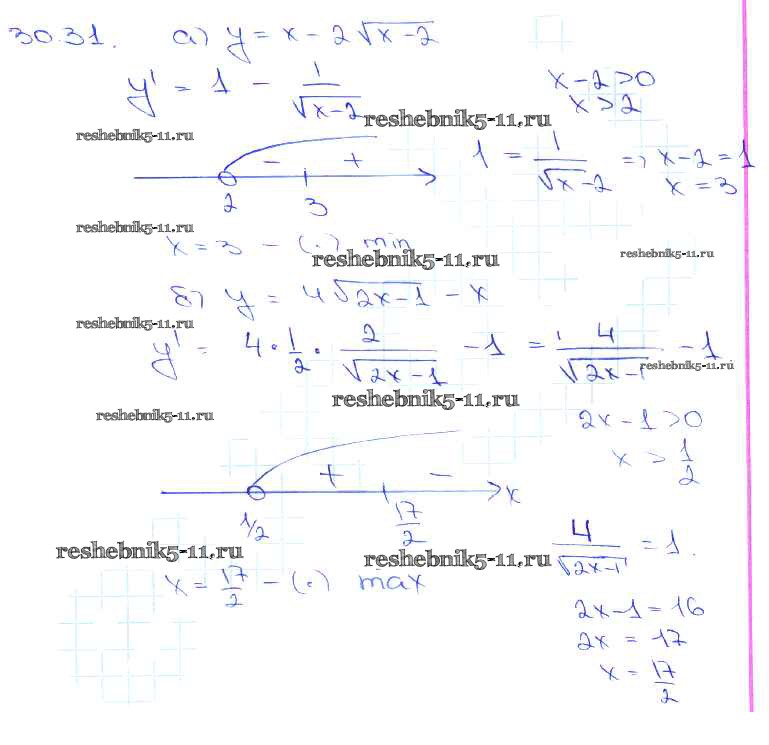 30.31. а) y = x - 2√(x-2)
y' = 1 - 1/√(x-2)
x-2>0
x>2
reshebnik5-11.ru
reshebnik5-11.ru
- +
2 3
1 = 1/√x-2 => x-2=1
x=3
reshebnik5-11.ru
x=3 - (·) min
reshebnik5-11.ru
reshebnik5-11.ru
б) y = 4√(2x-1) - x
reshebnik5-11.ru
y' = 4·1/2·2/√(2x-1) - 1 = 4/√(2x-1) - 1
reshebnik5-11.ru
reshebnik5-11.ru
reshebnik5-11.ru
2x-1>0
x > 1/2
+ -
1/2 17/2 x
reshebnik5-11.ru
reshebnik5-11.ru
4/√(2x-1) = 1.
x = 17/2 - (·) max
2x-1=16
2x = 17
x = 17/2